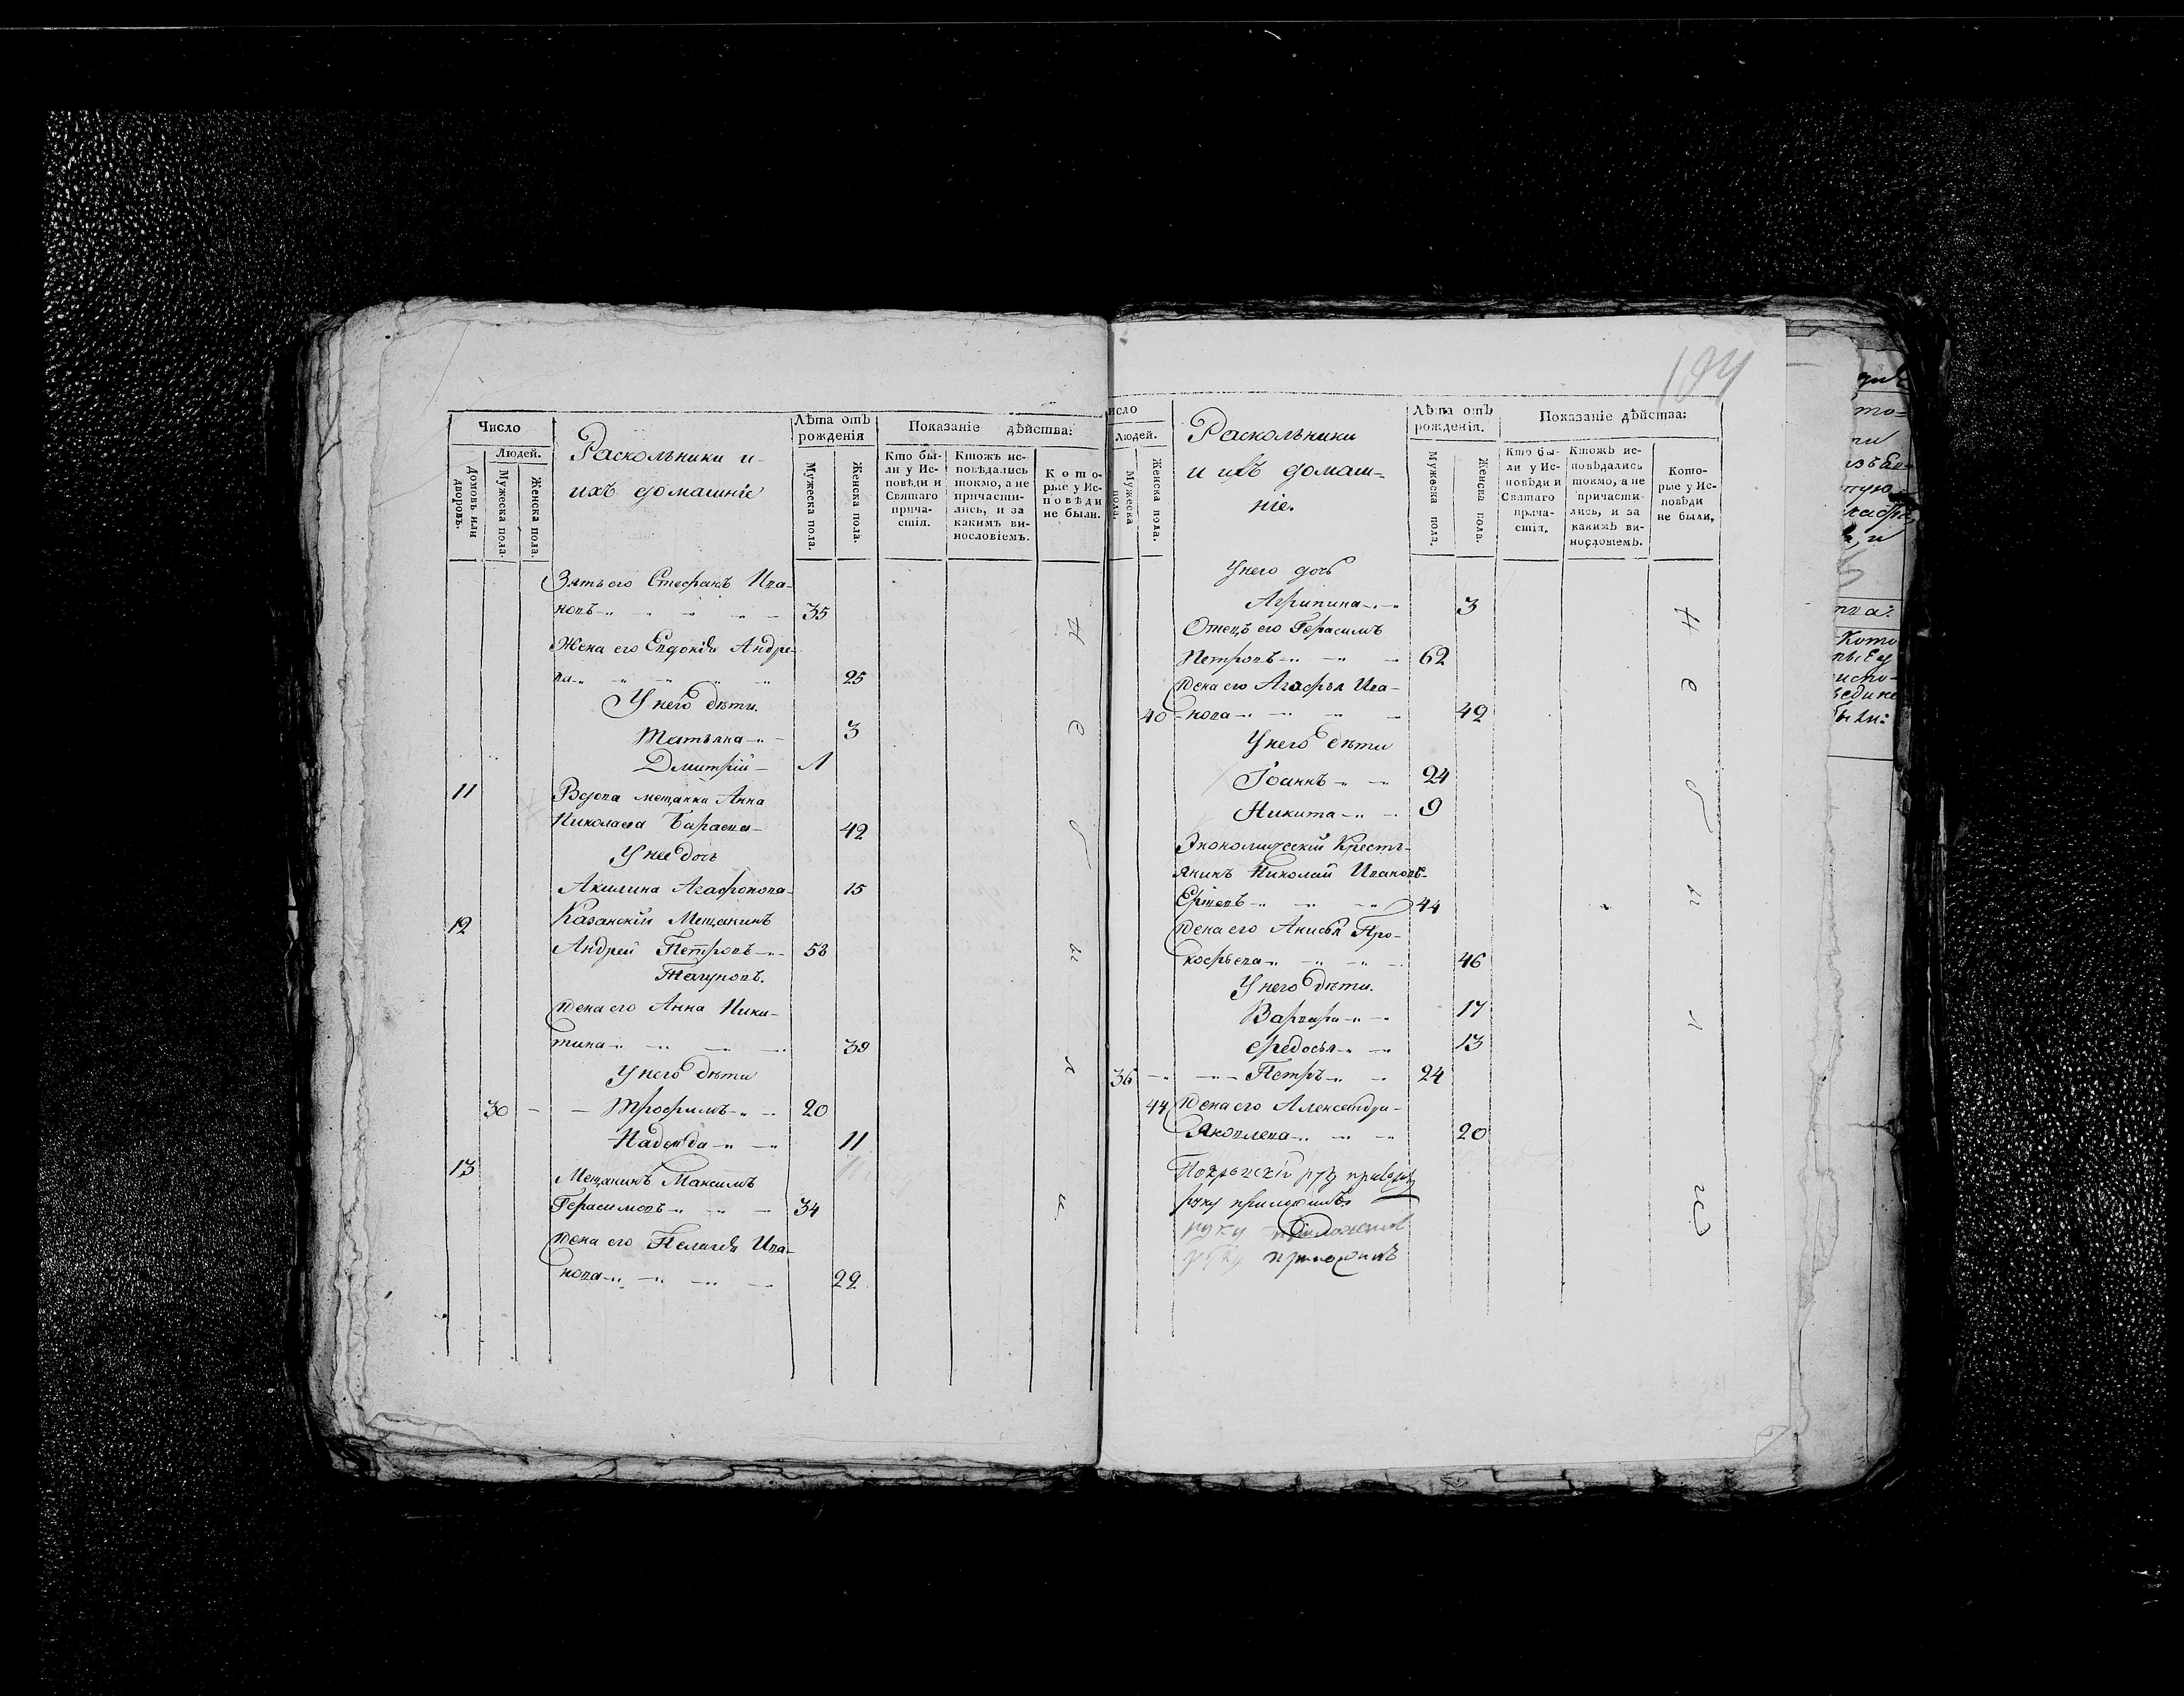 Число
Людей.
Домовъ или дворовъ.
Мужеска пола.
Женска пола.
Раскольники и
ихъ домашніе
Лѣта отъ рожденія
Мужеска пола.
Женска пола.
Показаніе дѣйства:
Кто бы-
ли у Ис-
повѣди и
Святаго
прича-
стія.
Ктожъ ис-
повѣдались
токмо, а не
причасти-
лись, и за
какимъ ви-
нословіемъ.
Кото-
рые у Ис-
повѣди
не были.
Зять его Стефанъ Ива-
новъ 35
Жена его Евдокія Андре-
ва 25
У него дѣти.
Татьяна 3
Дмитрій 1
11 Вдова мещанка Анна
Николаева 42
У нее дочь
Акилина Агафонова 15
12 Казанскій Мещанинъ
Андрей Петровъ 53
Жена его Анна Ники-
тина 39
У него дѣти
30 Трофимъ 20
Надежда 11
13 Мещанинъ Максимъ
Герасимовъ 34
Жена его Пелагея Ива-
нова 22
Н е б ы л и
194
исло
Людей.
Мужеска пола.
Женска пола.
Раскольники
и ихъ домаш-
ніе.
Лѣта отъ рожденія.
Мужеска пола.
Женска пола.
Показаніе дѣйства:
Кто бы-
ли у Ис-
повѣди и
Святаго
прича-
стія.
Ктожъ ис-
повѣдались
токмо, а не
причасти-
лись, и за
какимъ ви-
нословіемъ.
Кото-
рые у Ис-
повѣди
не были.
У него дочь
Агрипина 3
Отецъ его Герасимъ
Петровъ 62
Жена его Агафья Ива-
40 нова 42
У него дѣти
Іоаннъ 24
Никита 9
Экономическій Кресть-
янинъ Николай Ивановъ
44
Жена его Анисья Про-
кофьева 46
У него дѣти.
Варвара 17
Федосья 13
36 Петръ 24
44 Жена его Александра
Яковлева 20
руку приложилъ
руку приложилъ
руку приложилъ
Н е б ы л и